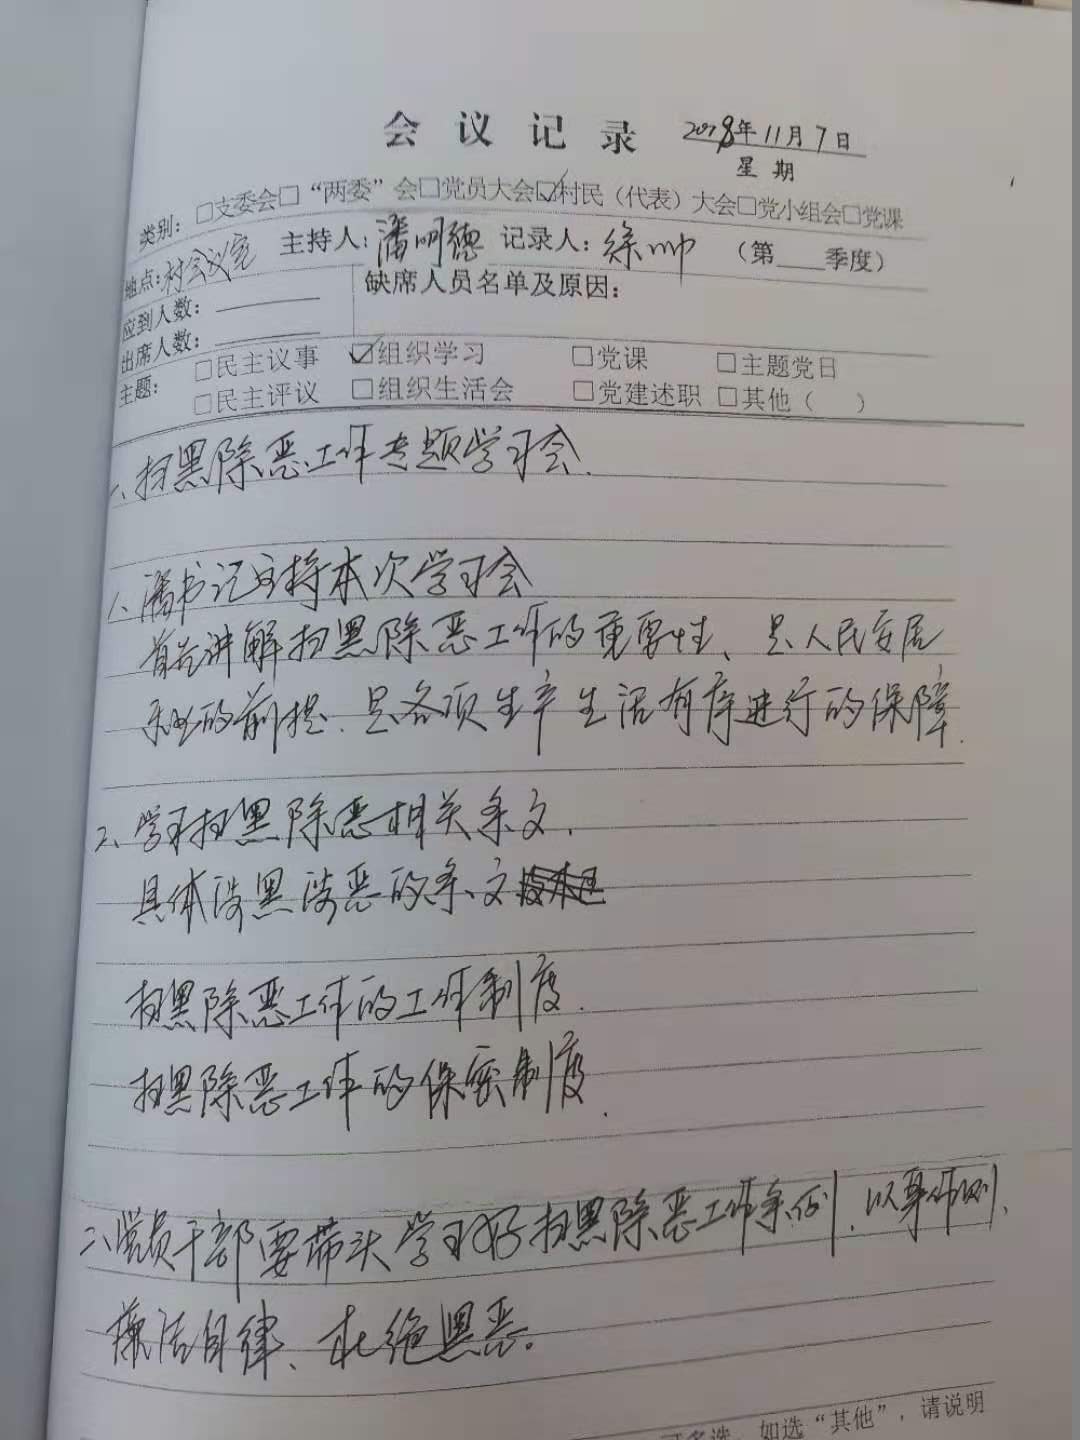 会议记录 2018年11月7日
星期
类别:□支委会□“两委”会□党员大会☑村民（代表）大会□党小组会□党课
地点:村会议室 主持人:潘明德 记录人:徐帅 （第____季度）
应到人数:______ 缺席人员名单及原因:
出席人数:______
主题: □民主议事 ☑组织学习 □党课 □主题党日
□民主评议 □组织生活会 □党建述职 □其他（ ）
一、扫黑除恶工作专题学习会.
1、潘书记主持本次学习会
首先讲解扫黑除恶工作的重要性、是人民安居
乐业的前提、是各项生产生活有序进行的保障.
二、学习扫黑除恶相关条文.
具体涉黑涉恶的条文
扫黑除恶工作的工作制度.
扫黑除恶工作的保密制度.
二、党员干部要带头学习好扫黑除恶工作条例、以身作则、
廉洁自律、杜绝黑恶。
可多选，如选“其他”，请说明